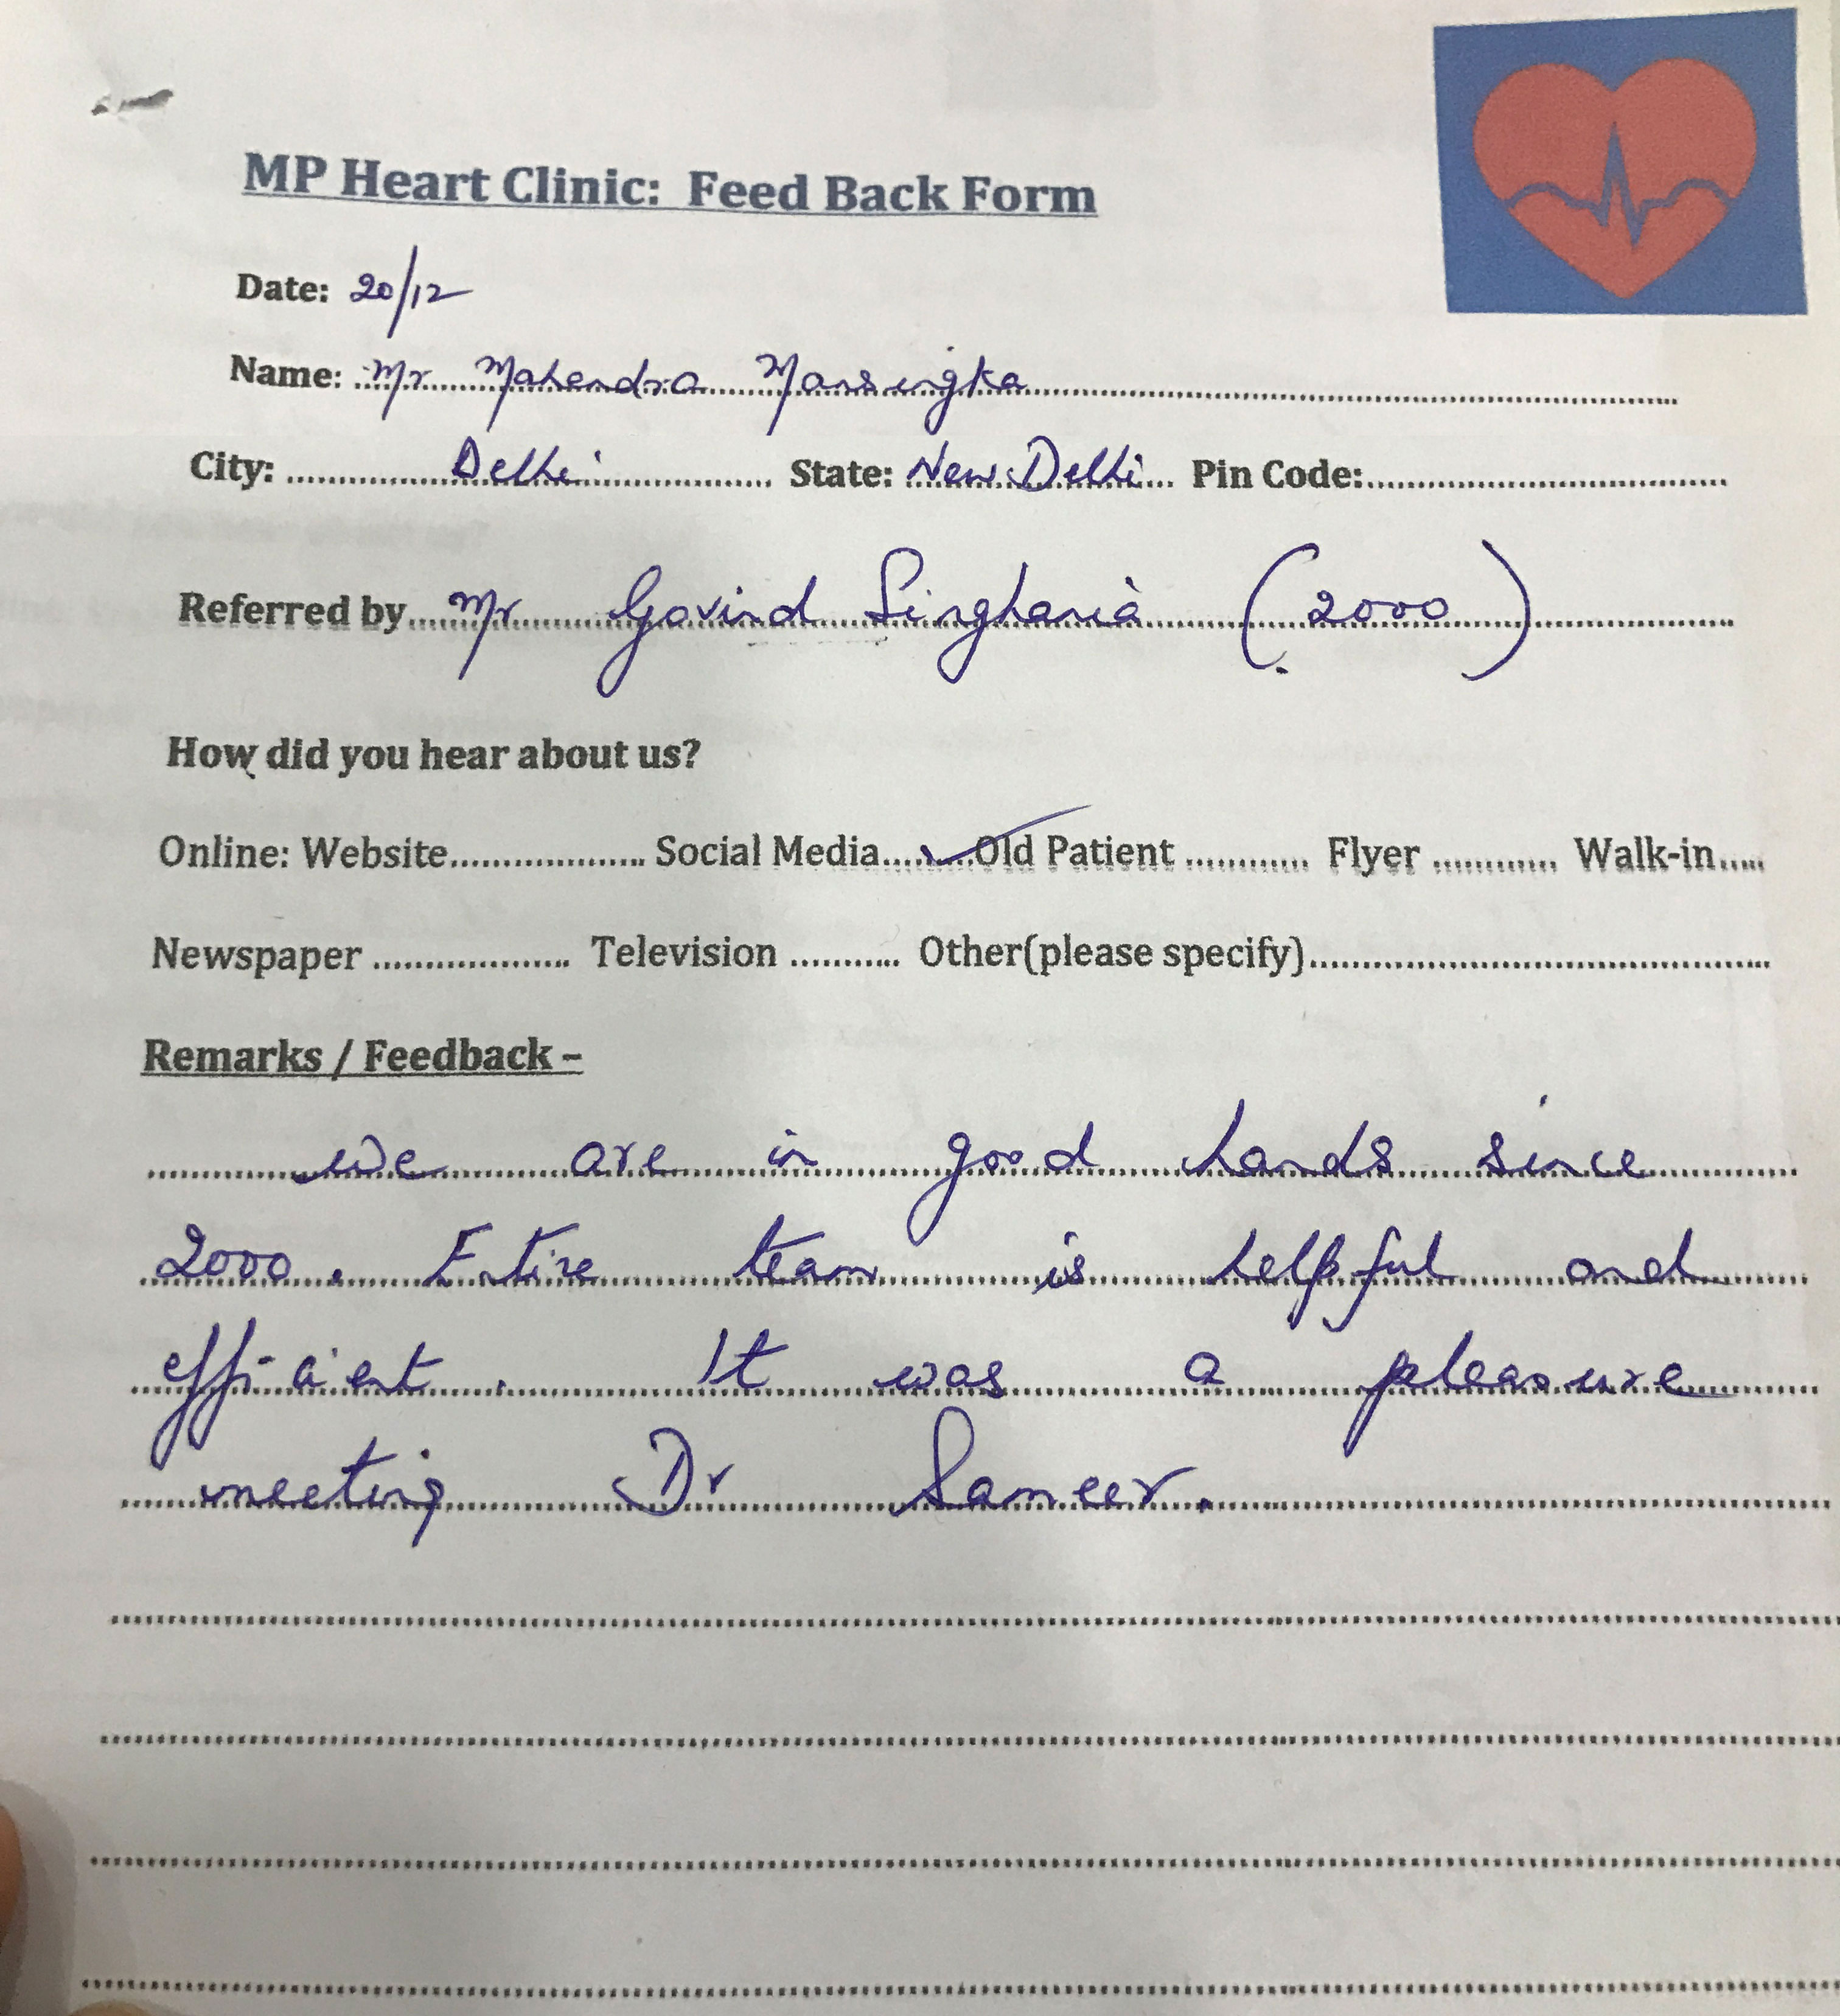 MP Heart Clinic: Feed Back Form
Date: 20/12
Name: Mr Mahendra Mansingka
City: Delhi State: New Delhi Pin Code:
Referred by Mr Govind Singhania (2000)
How did you hear about us?
Online: Website Social Media ✓ Old Patient Flyer Walk-in
Newspaper Television Other(please specify)
Remarks / Feedback –
We are in good hands since
2000. Entire team is helpful and
efficient. It was a pleasure
meeting Dr Sameer.